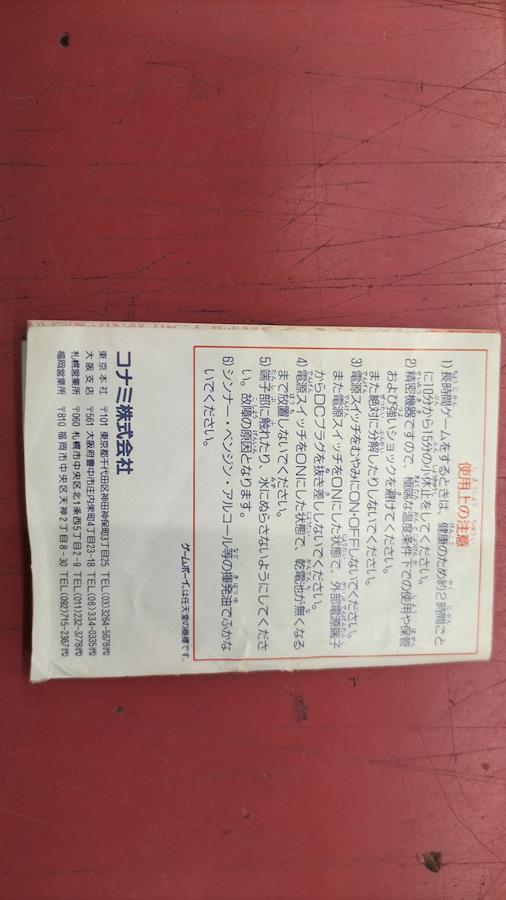 使用上の注意
1) 長時間ゲームをするときは、健康のため約2時間ごと
に10分から15分の小休止をしてください。
2) 精密機器ですので、極端な温度条件下での使用や保管
および強いショックを避けてください。
また絶対に分解したりしないでください。
3) 電源スイッチをむやみにON・OFFしないでください。
また電源スイッチをONにした状態で、外部電源端子
からDCプラグを抜き差ししないでください。
4) 電源スイッチをONにした状態で、乾電池が無くなる
まで放置しないでください。
5) 端子部に触れたり、水にぬらさないようにしてくださ
い。故障の原因となります。
6) シンナー・ベンジン・アルコール等の揮発油でふかな
いでください。
ゲームボーイ™は任天堂の商標です。
コナミ株式会社
東京本社 〒101 東京都千代田区神田神保町3丁目25 TEL(03)3264-5678代
大阪支店 〒561 大阪府豊中市庄内栄町4丁目23-18 TEL(06)334-0335代
札幌営業所 〒060 札幌市中央区北1条西5丁目2-9 TEL(011)232-3778代
福岡営業所 〒810 福岡市中央区天神2丁目8-30 TEL(092)715-2367代